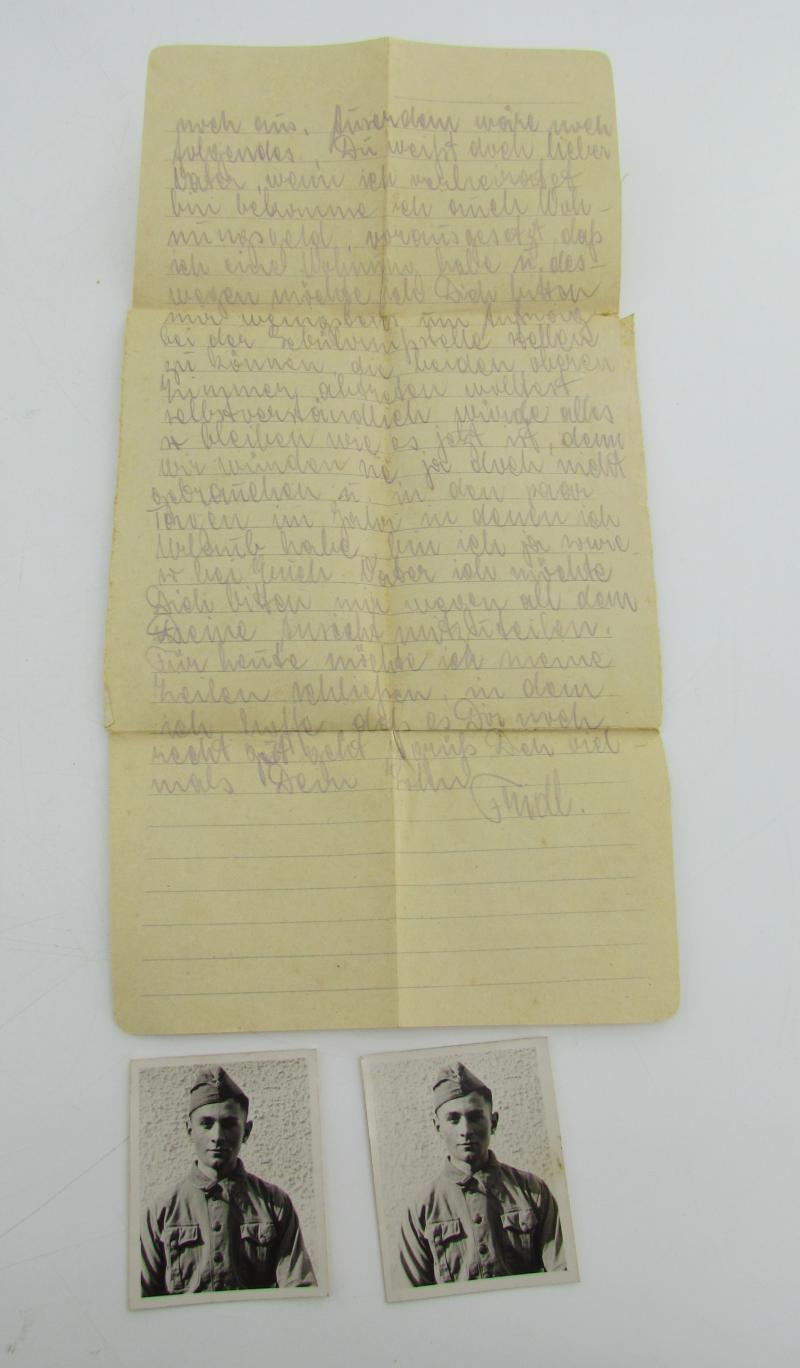 noch aus. Auserdem wäre noch
folgendes, Du weißt doch lieber
Vater, wenn ich verheiratet
bin bekomme ich auch Woh-
nungsgeld, vorausgesetzt, daß
ich eine Wohnung habe u. des-
wegen möchte ich Dich bitten
mir wenigstens um Antrag
bei der Gebührnisstelle stellen
zu können, die beiden oberen
Zimmer abtreten wolltest
selbstverständlich würde alles
so bleiben wie es jetzt ist, denn
wir würden sie ja doch nicht
gebrauchen u. in den paar
Tagen im Jahr in denen ich
Urlaub habe, bin ich ja sowie-
so bei Euch. Vater ich möchte
Dich bitten mir wegen all dem
Deine Ansicht mitzuteilen.
Für heute möchte ich meine
Zeilen schließen, in dem
ich hoffe daß es Dir noch
recht gut geht u. grüß Dich viel-
mals Dein Sohn
Fridl.